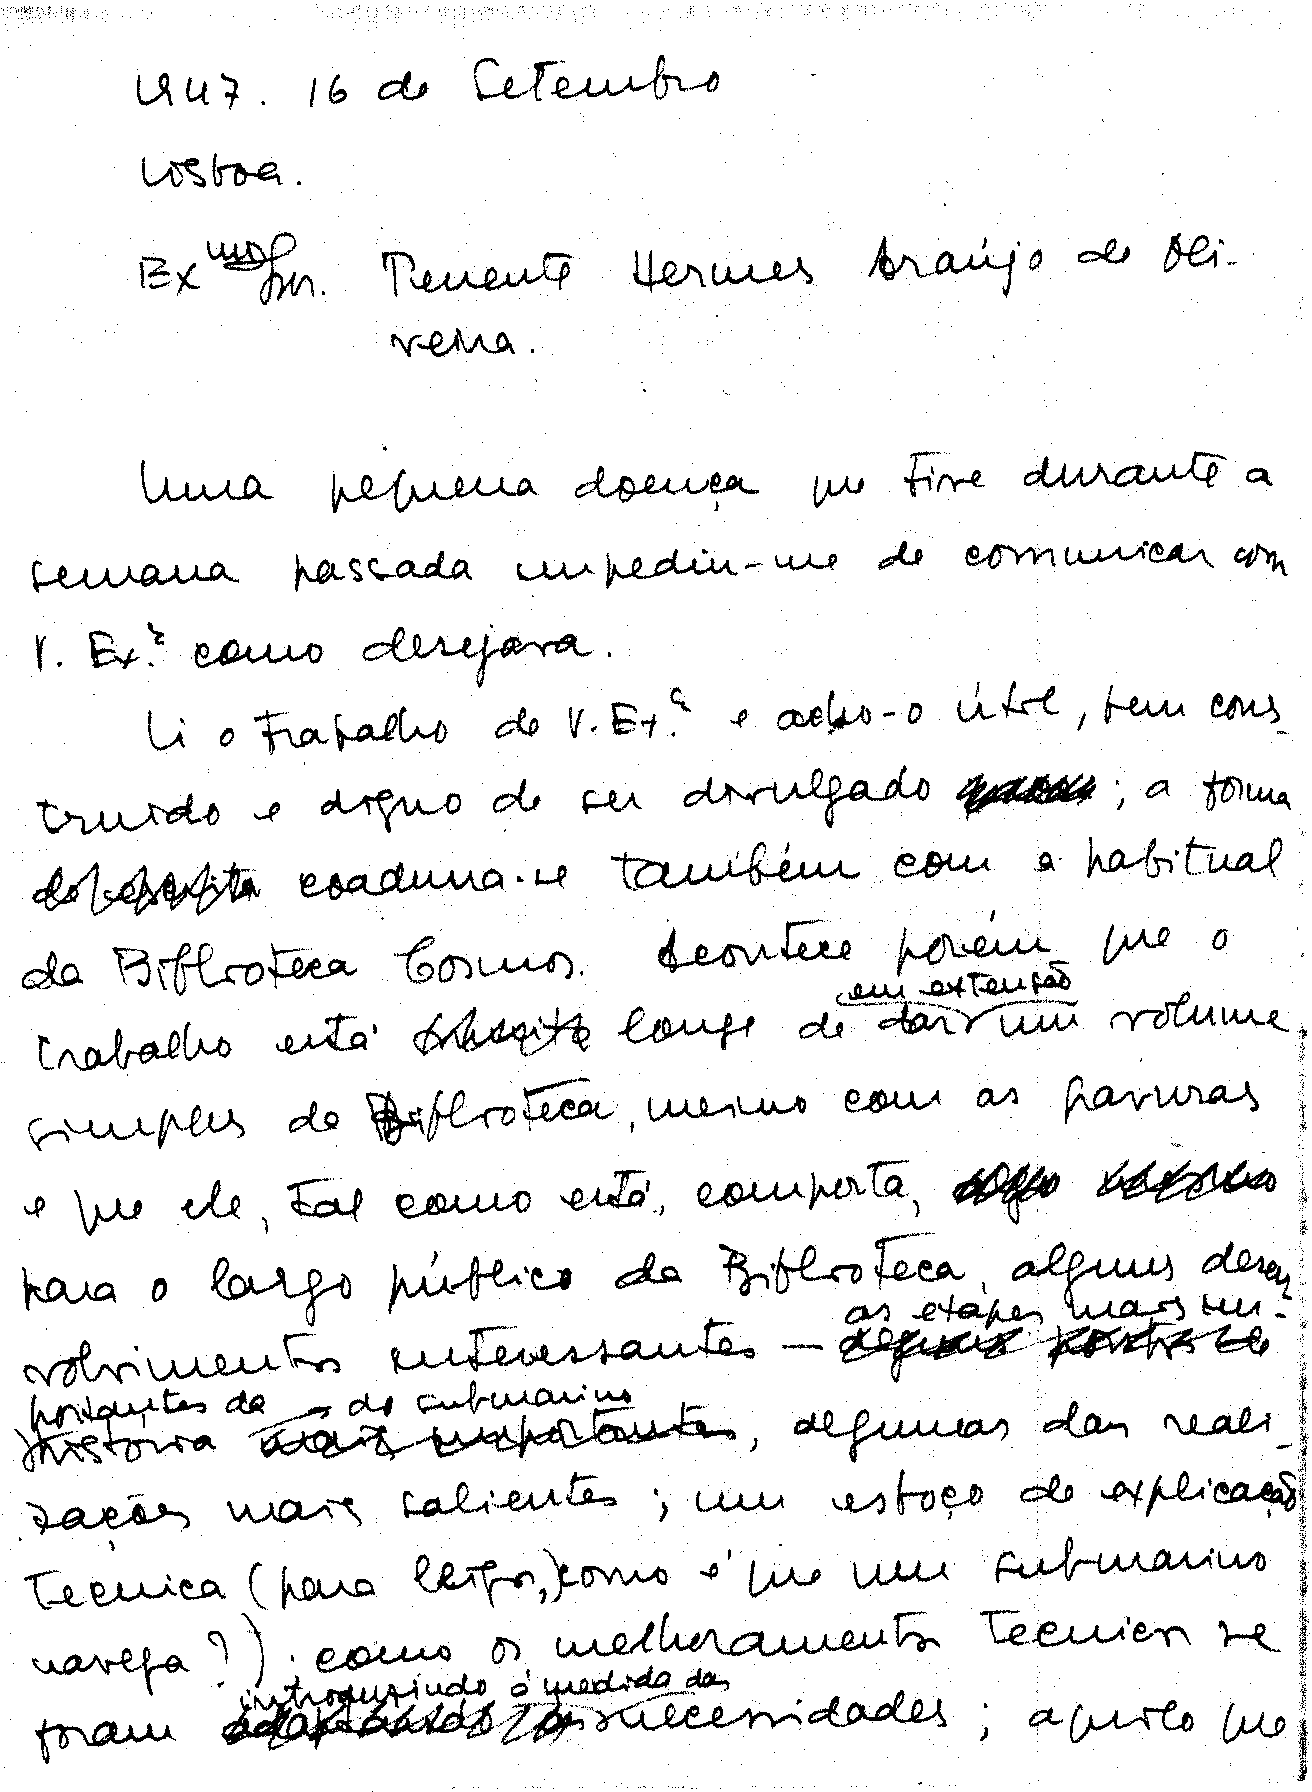 1947. 16 de Setembro
Lisboa.
Ex mo Snr. Tenente Hermes Araújo de Oli-
veira.
Uma pequena doença que tive durante a
semana passada impediu-me de comunicar com
V. Ex.ª como desejava.
Li o trabalho de V. Ex.ª e acho-o útil, bem cons-
truido e digno de ser divulgado ; a forma
de escrita coaduna-se também com a habitual
da Biblioteca Cosmos. Acontece porém que o
em extensão
trabalho está longe de dar um volume
simples da Biblioteca, mesmo com as gravuras
e que ele, tal como está, comporta,
para o largo público da Biblioteca, alguns desen
as etapes mais im-
volvimentos interessantes —
portantes da do submarino
história mais importantes, algumas das reali-
zações mais salientes ; um esboço de explicação
tecnica (para leigos,) como é que um submarino
navega ?) . como os melhoramentos tecnicos se
introduzindo á medida das
foram necessidades ; aquilo que